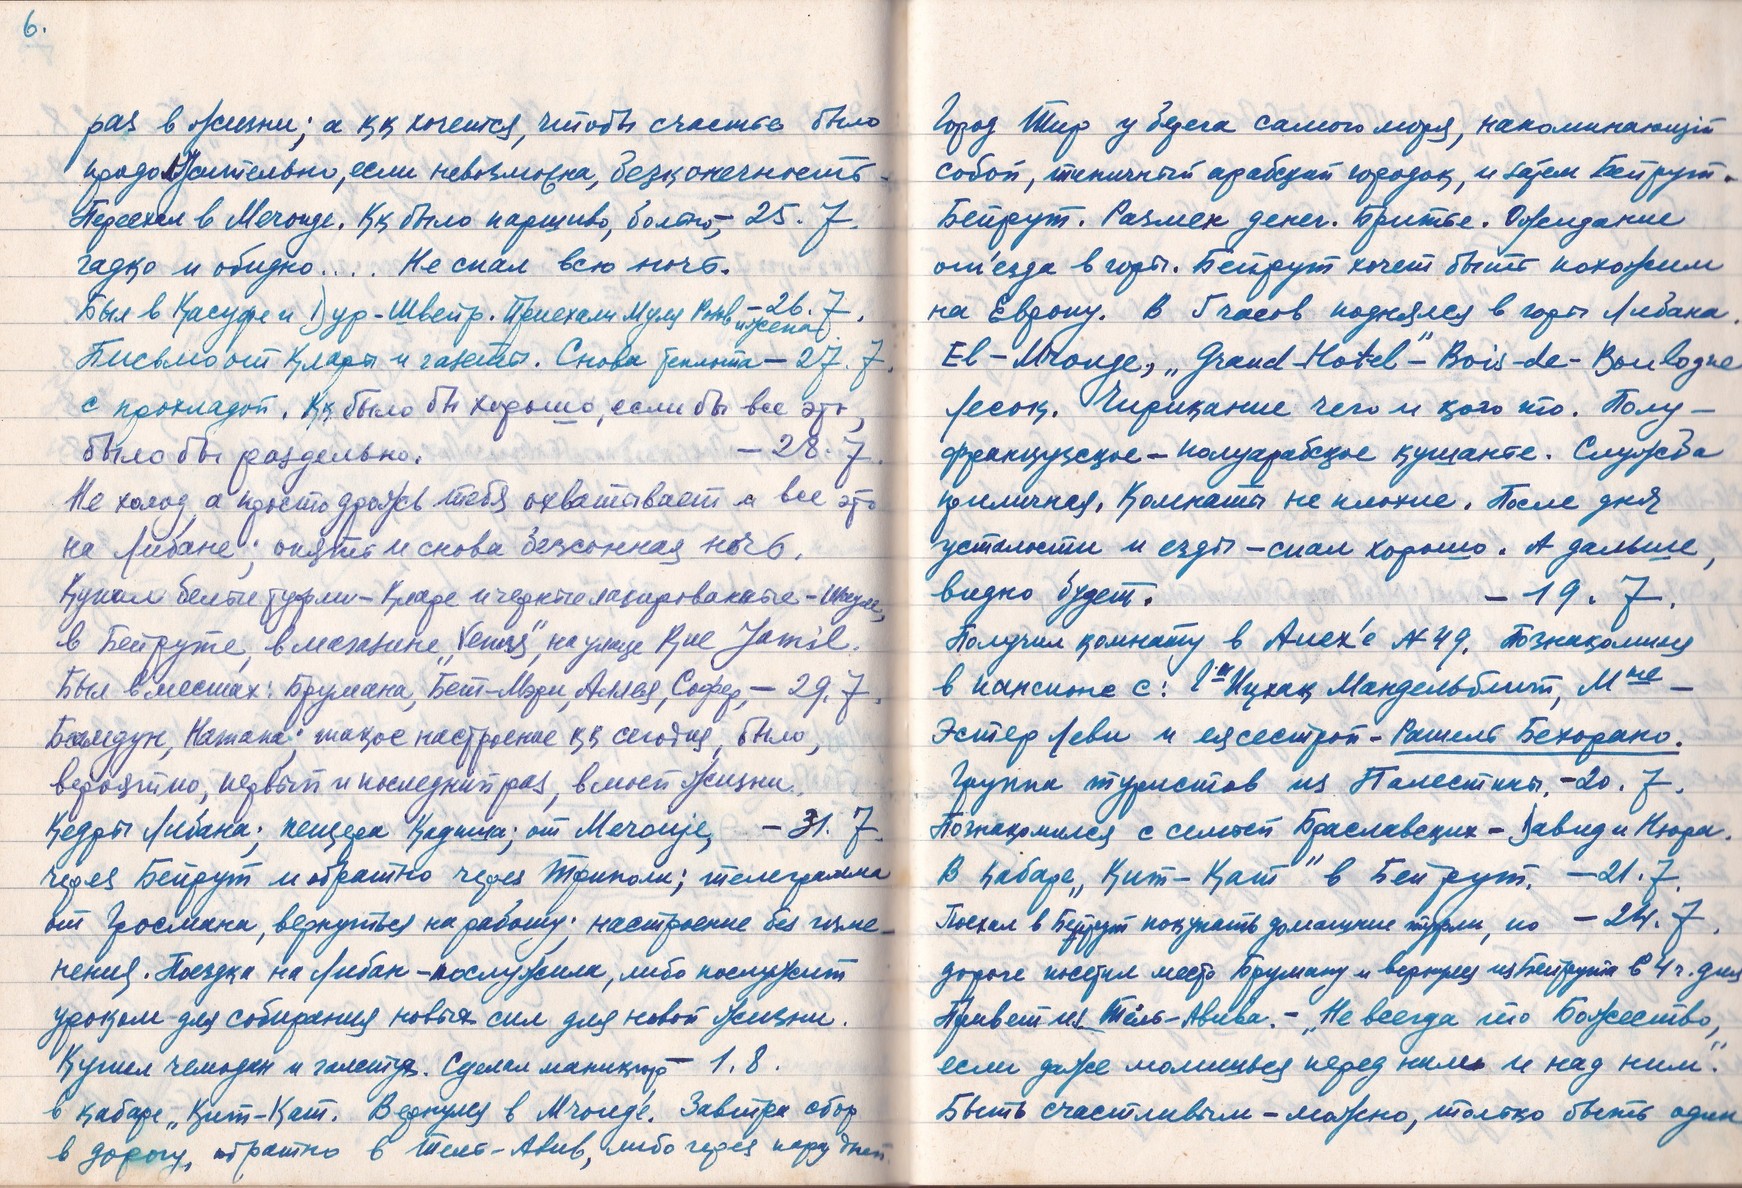 6.
раз в жизни; а кк хочется, чтобы счастье было
продолжительно, если невозможна, безконечность -
Переехал в Мечоидж. Кк было паршиво, больно, - 25. 7.
гадко и обидно.... Не спал всю ночь.
Был в Касуфе и Дур-Швейр. Приехали Муля и жена - 26. 7.
Письмо от Клары и газеты. Снова теплота - 27. 7.
с прохладой. Кк было бы хорошо, если бы все это,
было бы раздельно. - 28. 7.
Не холод, а просто дрожь тебя охватывает и все это
на Либане; опять и снова безсонная ночь.
Купил белые туфли - Кларе и черные лакированные -
в Бейруте, в магазине „Venus", на улице Rue Jamil.
Был в местах: Брумана, Бет-Мэри, Аллея, Софер, - 29. 7.
Бхамдун, Натана; такое настроение кк сегодня, было,
вероятно, первый и последний раз, в моей жизни.
Кедры Либана; пещера Кадиша; от Мечоидж, - 31. 7.
через Бейрут и обратно через Триполи; телеграмма
от Гросмана, вернуться на работу; настроение без изме-
нения. Поездка на Либан - послужила, либо послужит
уроком для собирания новых сил для новой жизни.
Купил чемодан и галстук. Сделал маникюр - 1. 8.
в кабаре „Кит-Кат. Вернулся в Мчоидж. Завтра сбор
в дорогу, обратно в Тель-Авив, либо через пару дней.
Город Тир у берега самого моря, напоминающий
собой, типичный арабский городок, и затем Бейрут.
Бейрут. Размен денег. Бритье. Ожидание
от'езда в горы. Бейрут хочет быть похожим
на Европу. В 7 часов поднялся в горы Либана.
Ел - Мчоидж, „Grand-Hotel" - Bois-de-Boulogne
лесок. Чирикание чего и кого то. Полу-
французское - полуарабское кушанье. Служба
приличная. Комнаты не плохие. После дня
усталости и езды - спал хорошо. А дальше,
видно будет. - 19. 7.
Получил комнату в Анех'е № 49. Познакомился
в пансионе с: Г-н Ицхак Мандельблит, Мme -
Эстер Леви и ея сестрой - Рашель Бехорано.
Группа туристов из Палестины. - 20. 7.
Познакомился с семьей Браславских - Давид и Нюра.
В кабаре „Кит-Кат" в Бейрут. - 21. 7.
Поехал в Бейрут покупать домашние туфли, по - 24. 7.
дороге посетил место Бруману и вернулся из Бейрута в 4 ч. дня
Привет из Тель-Авива. - „Не всегда то Божество,
если даже молишься перед ним и над ним".
Быть счастливым - можно, только быть один